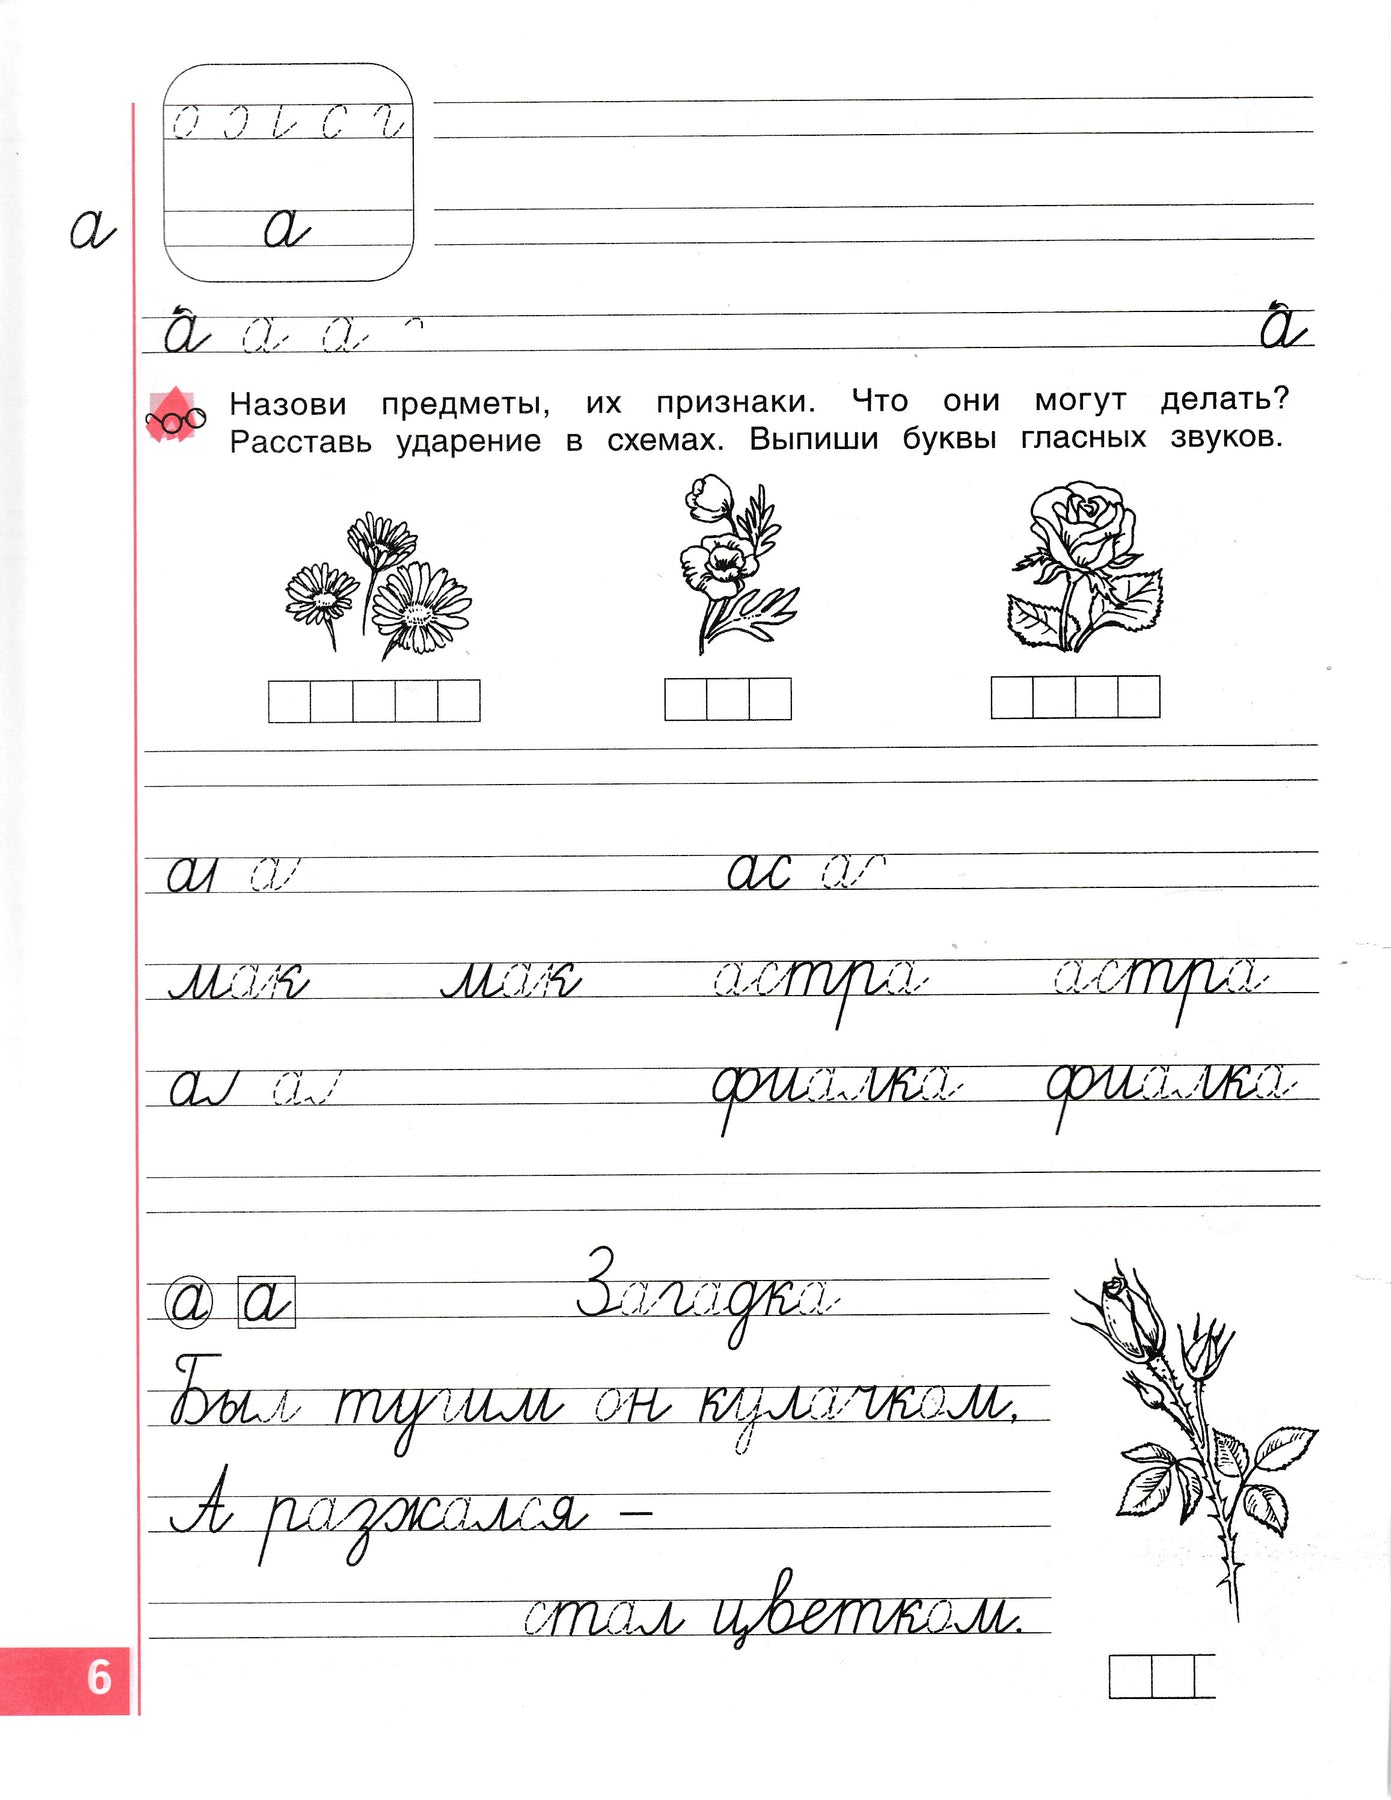 а
а
а а а а
Назови предметы, их признаки. Что они могут делать?
Расставь ударение в схемах. Выпиши буквы гласных звуков.
ас
мак мак астра астра
фиалка фиалка
а а Загадка
Был тугим он кулачком,
А разжался –
стал цветком.
6